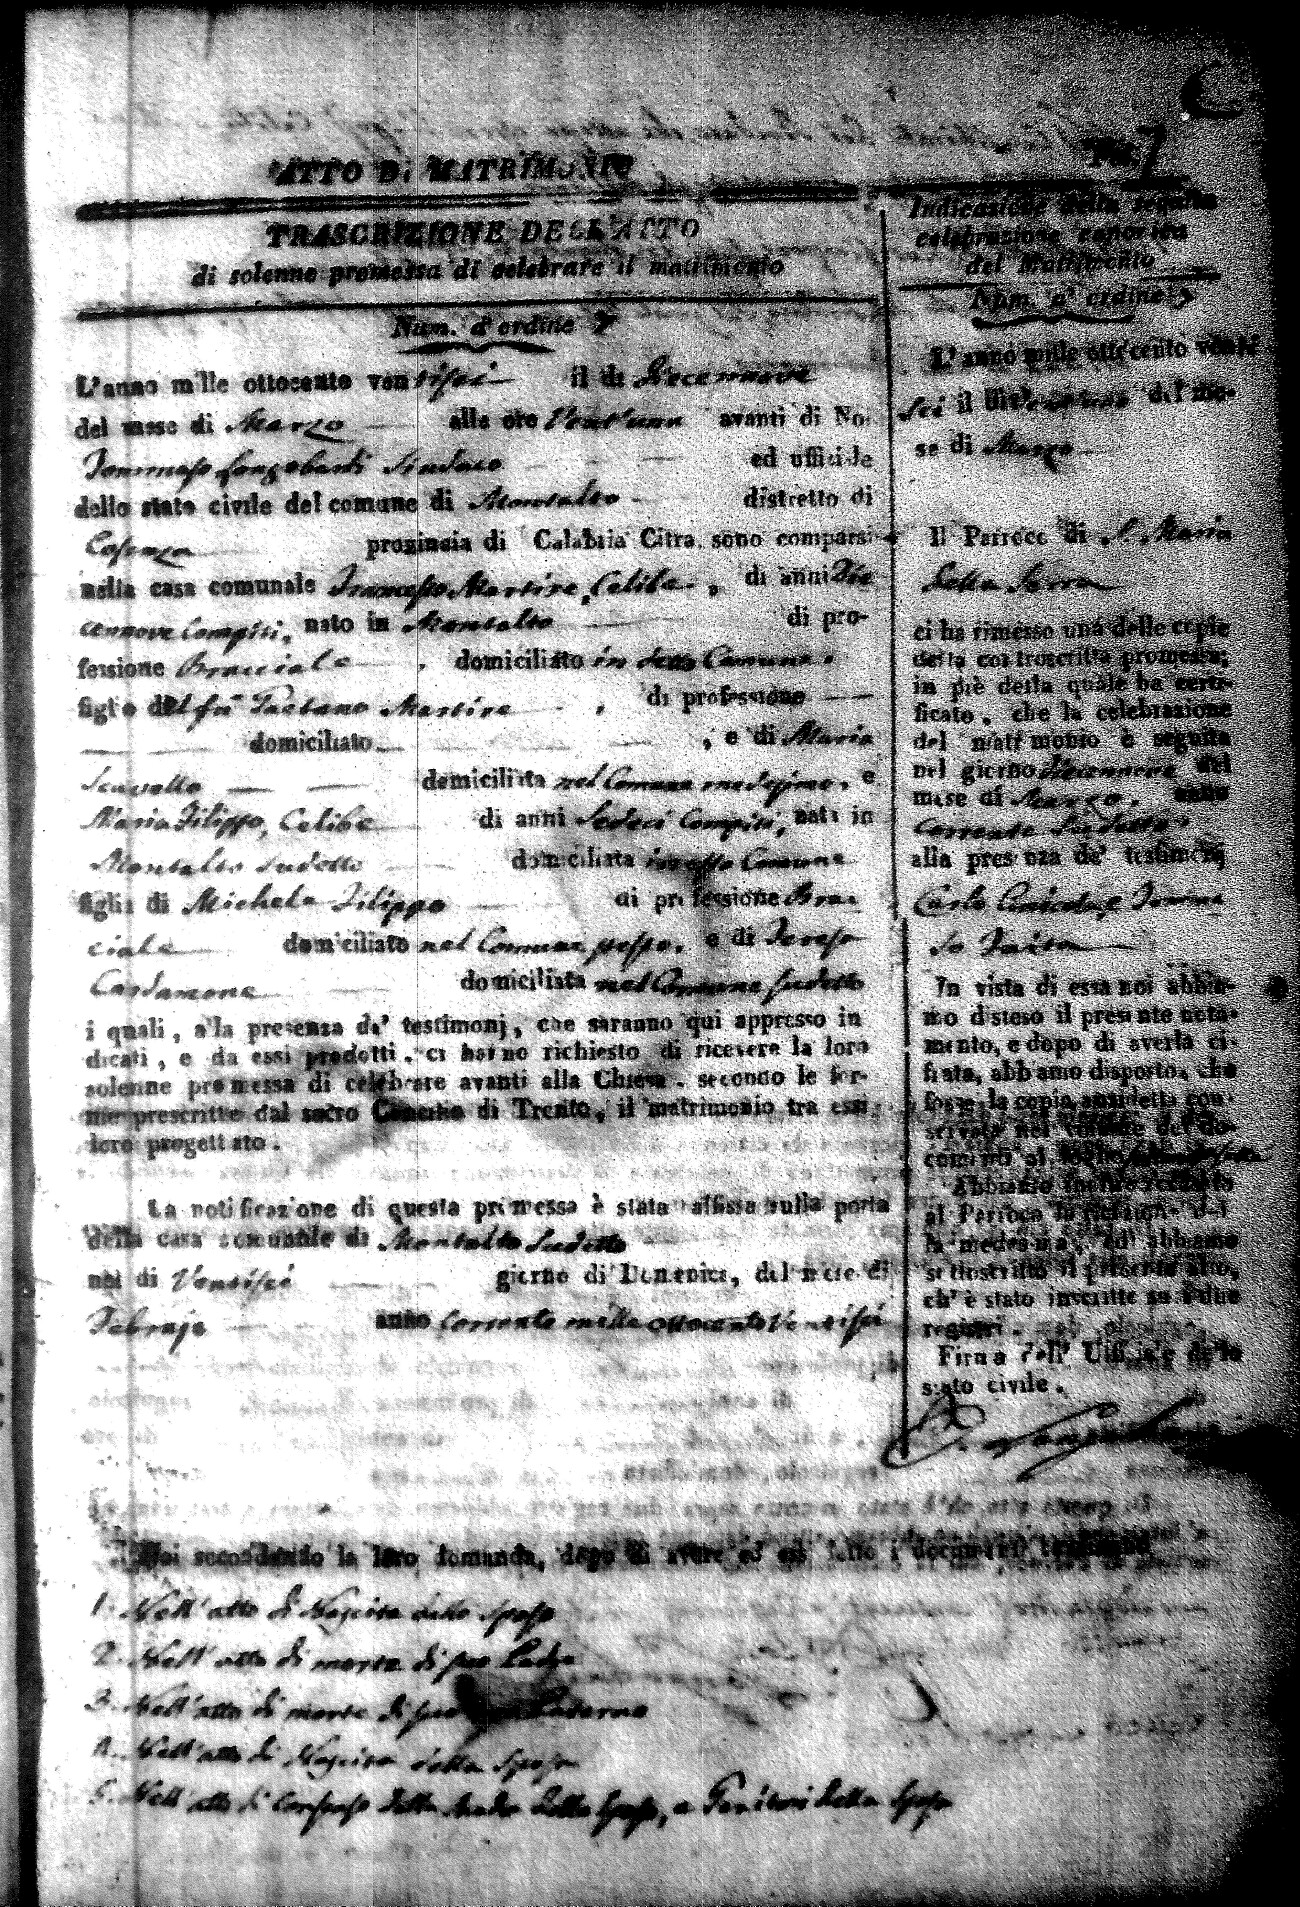 ATTO DI MATRIMONIO
TRASCRIZIONE DELL'ATTO
di solenne promessa di celebrare il matrimonio
Num. d'ordine 7
L'anno mille ottocento ventisei il di
del mese di Marzo alle ore Vent'una avanti di Noi
Tommaso Longobardi Sindaco ed uffiziale
dello stato civile del comune di Montalto distretto di
Cosenza provincia di Calabria Citra sono comparsi
nella casa comunale Francesco Martire, Celibe, di anni Die
cennove Compiti, nato in Montalto di pro-
fessione Bracciale, domiciliato in detto Comune.
figlio del fu Gaetano Martire, di professione
domiciliato , e di Maria
domiciliata nel Comune medesimo, e
Maria Filippo, Celibe di anni Sedeci Compiti, nata in
Montalto sudetto domiciliata in esso Comune
figlia di Michele Filippo di professione Brac
ciale domiciliato nel Comune stesso, e di Teresa
Cardamone domiciliata nel Comune sudetto
i quali, alla presenza de' testimonj, che saranno qui appresso in
dicati, e da essi prodotti, ci hanno richiesto di ricevere la loro
solenne promessa di celebrare avanti alla Chiesa, secondo le for-
me prescritte dal sacro Concilio di Trento, il matrimonio tra essi
loro progettato.
La notificazione di questa promessa è stata affissa sulla porta
della casa comunale di Montalto sudetto
nel di Ventisei giorno di Domenica, del mese di
Febrajo anno corrente mille ottocento Ventisei
Noi secondando la loro domanda, dopo di avere ad essi letto i documenti
1. Nell'atto di Nascita dello sposo
2. Nell'atto di morte di suo Padre
3. Nell'atto di morte di suo Paterno
4. Nell'atto di Nascita della sposa
5. Nell'atto di Consenso della Madre dello sposo, e Genitori della sposa
7
Indicazione della seguita
celebrazione canonica
del Matrimonio
Num. d'ordine 7
L'anno mille ottocento venti
sei il di del me-
se di Marzo
Il Parroco di S. Maria
della Serra
ci ha rimesso una delle copie
della controscritta promessa;
in piè della quale ha certi-
ficato, che la celebrazione
del matrimonio è seguita
nel giorno diecennove del
mese di Marzo, anno
corrente sudetto
alla presenza de' testimonj
Carlo e Tomma
so
In vista di essa noi abbia-
mo disteso il presente nota-
mento, e dopo di averla ci-
frata, abbiamo disposto, che
fosse la copia anzidetta con-
servata nel volume dei do-
cumenti al foglio
Abbiamo inoltre accusato
al Parroco la ricezione del-
la medesima, ed abbiamo
sottoscritto il presente atto,
ch'è stato inscritto su i due
registri.
Firma dell' Uffiziale dello
stato civile.